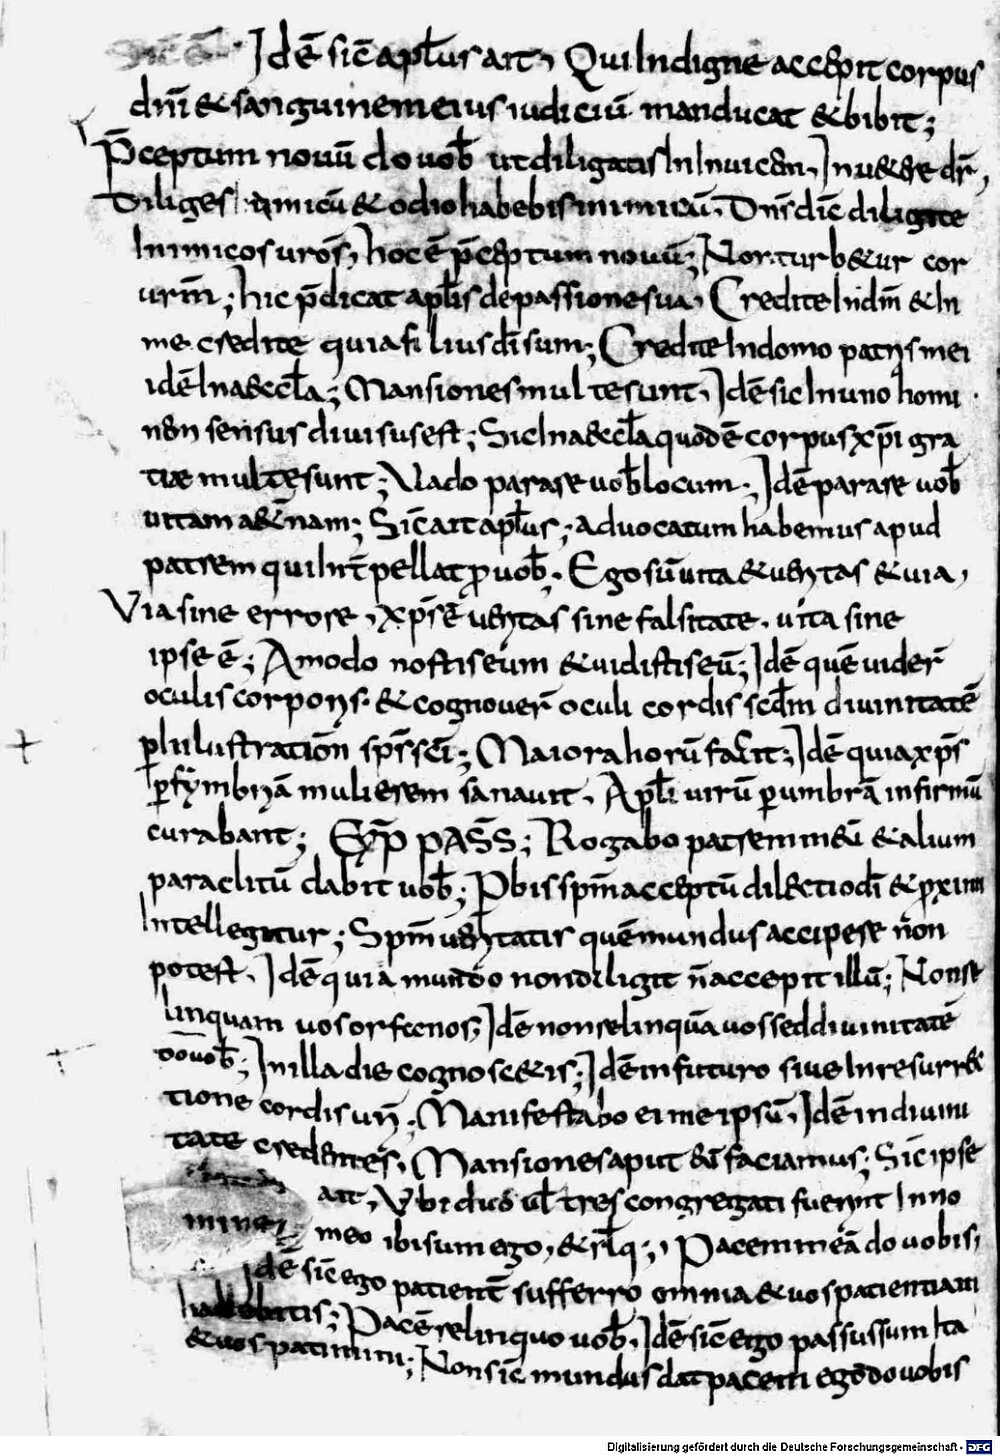 Idē sic̄ apłus ait, Qui Indigne accepit corpus
dn̄i & sanguinem eius iudiciū manducat & bibit;
P̄ceptum nouū do uob̄ ut diligatis In Inuicem, In u&ere dr̄,
Diliges amicū & odio habebis inimicū, Dn̄s dic̄ diligite
Inimicos uros̄, hoc ē p̄ceptum nouū; Non turb&ur cor
urm̄; hic p̄dicat apłis de passione sua, Credite In dm̄ & In
me credite quia filius di sum; Credite In domo patris mei
idē In aeccła; Mansiones multe sunt, Idē sic In uno homi
nem sensus diuisus est; Sic In aeccła quod ē corpus xp̄i gra
tiae multe sunt; Uado parare uob̄ locum; Idē parare uob̄
uitam a&nam; Sic̄ ait apłus; aduocatum habemus apud
patrem qui Int̄pellat ꝓ uob̄, Ego sū uita & ueritas & uia,
Via sine errore, xp̄s ē ueritas sine falsitate, uita sine
ipse ē; Amodo nostis eum & uidistis eū; Idē quē uider̄
oculis corporis & cognouer̄ oculi cordis scdm̄ diuinitatē
ꝑ Inlustration̄ sps̄ sci; Maiora horū faciet; Idē quia xp̄s
ꝑ fymbriā mulierem sanauit, Apłi uirū ꝑ umbrā infirmū
curabant; Rogabo patrem meū & alium
paraclitū dabit uob̄; P bis spm̄ acceptū dilectio dī & ꝓximi
Intellegitur; Spm̄ ueritatis quē mundus accipere non
potest, Idē quia mundo non diligit n̄ accepit illū; Non re
linquam uos orfenos, Idē non relinquā uos sed diuinitatē
do uob̄; In illa die cognosc&is; Idē in futuro siue In resurrec
tione cordis ur̄i; Manifestabo ei me ipsū, Idē in diuini
tate credentes, Mansiones aput eū faciamus; Sic̄ ipse
ait, Ubi duo uł tres congregati fuerint In no
mine meo ibi sum ego, & rlq̄; Pacem meā do uobis,
Idē sic̄ ego patient̄ sufferro omnia & uos patientiam
habebitis; Pacē relinquo uob̄, Idē sic̄ ego passus sum Ita
& uos patimini; Non sic̄ mundus dat pacem ego do uobis
Digitalisierung gefördert durch die Deutsche Forschungsgemeinschaft - DFG